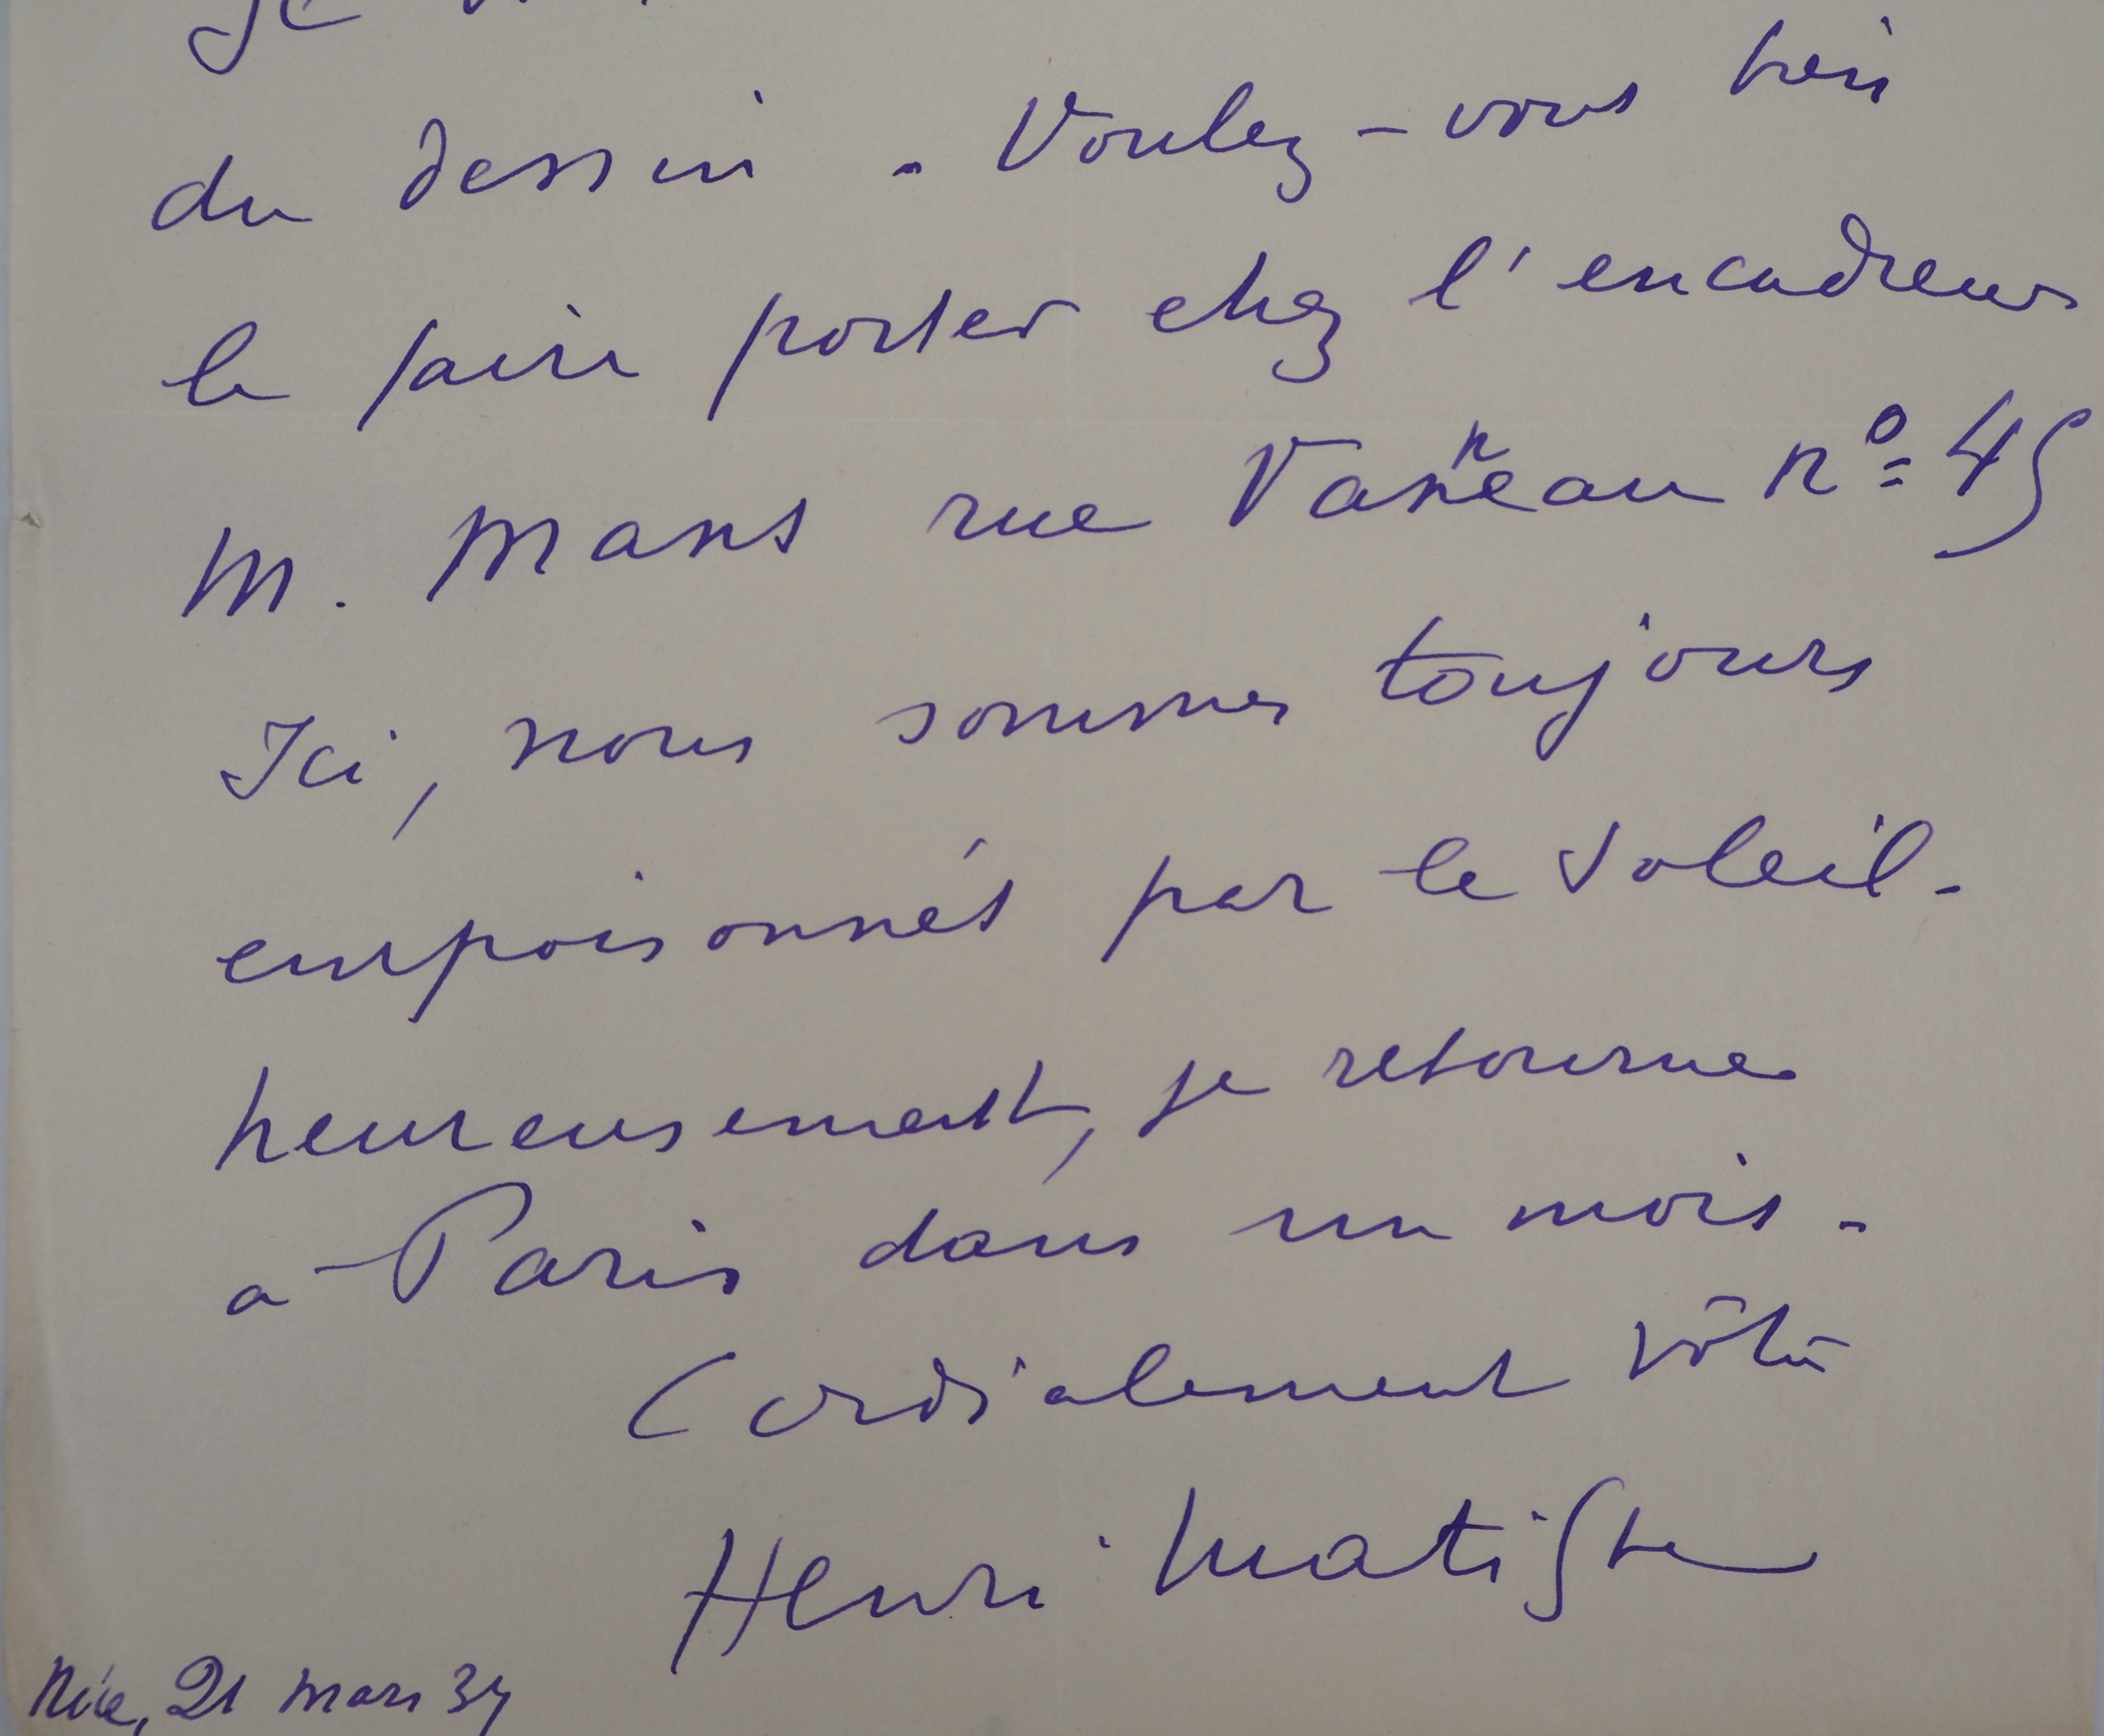 Je
du dessin - Voulez-vous bien
le faire porter chez l'encadreur
M. Mans rue Vanneau nº 45
Ici, nous sommes toujours
empoisonnés par le soleil -
heureusement, je retourne
à Paris dans un mois -
Cordialement vôtre
Henri Matisse
Nice, 21 mars 34